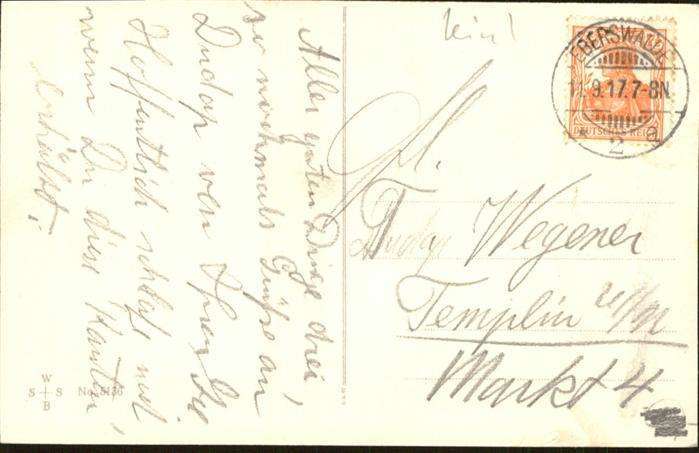 Aller guten Dinge drei,
so nochmals Grüße an
von
Hoffentlich schläfst nicht
wenn Du diese Karten
erhältst!
W
S S
B
No.
EBERSWALDE
11.9.17.7-8N.
* 2 a
DEUTSCHES REICH
Frl.
T. Wegener
Templin u/M
Markt 4